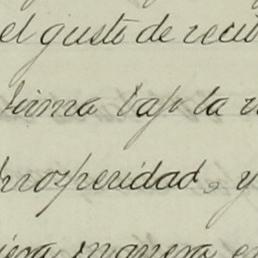 el gusto de recib
firma bajo la
prosperidad, y
manera en